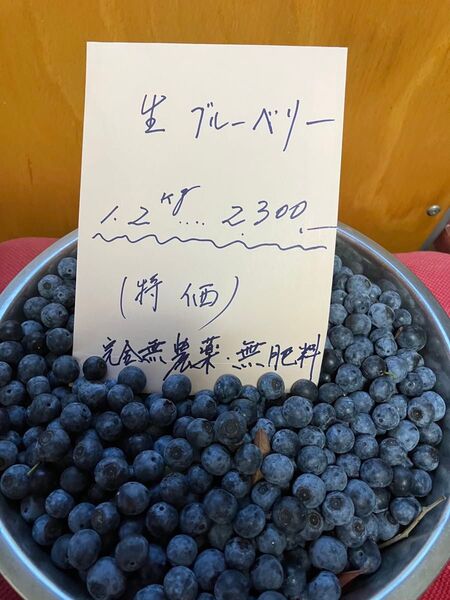 生 ブルーベリー
1.2kg.... 2.300.—
(特価)
完全無農薬・無肥料